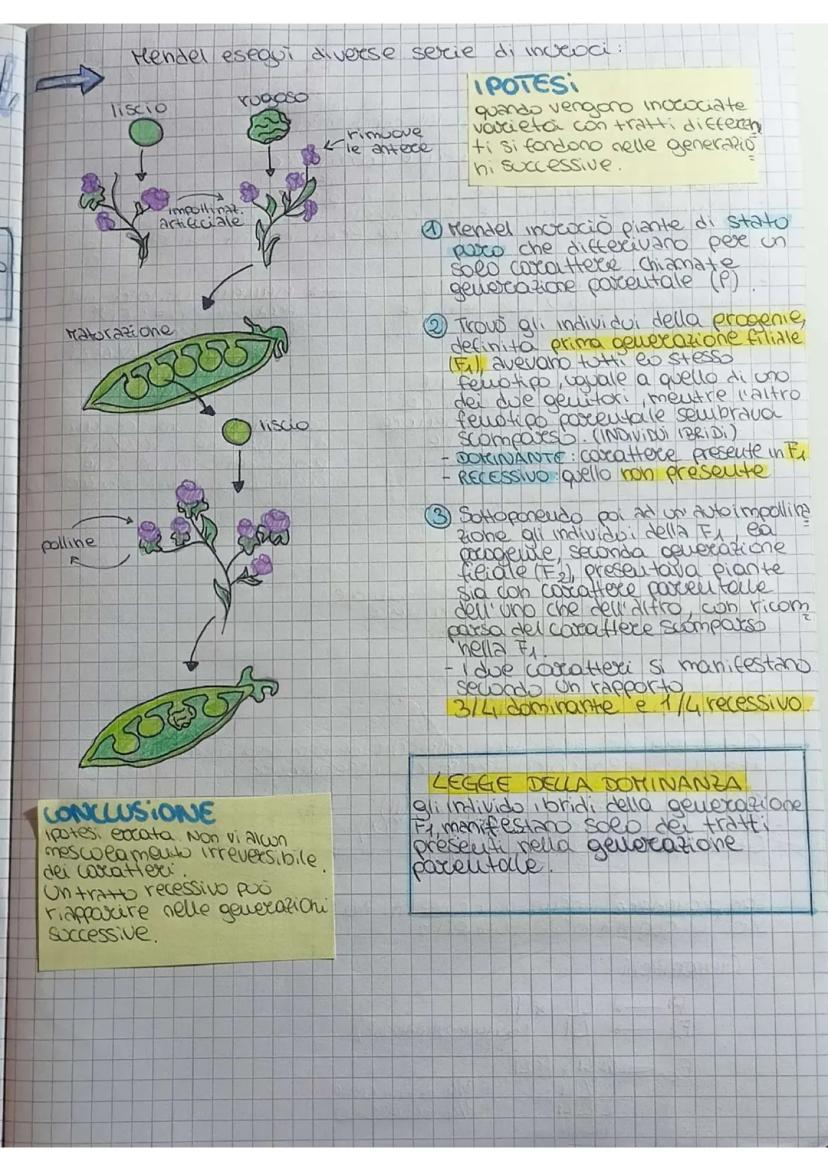 Mendel eseguì diverse serie di incroci:
liscio
rugoso
rimuove
le antere
impollinaz.
artificiale
Maturazione
liscio
polline
IPOTESI
quando vengono incrociate
varietà con tratti differen
ti si fondono nelle generazio
ni successive.
① Mendel incrociò piante di stato
puro che differivano per un
solo carattere. Chiamate
generazione parentale (P).
② Trovò gli individui della progenie,
definita prima generazione filiale
(F1), avevano tutti lo stesso
fenotipo, uguale a quello di uno
dei due genitori, mentre l'altro
fenotipo parentale sembrava
scomparso. (INDIVIDUI IBRIDI)
- DOMINANTE: carattere presente in F1
- RECESSIVO: quello non presente
③ Sottoponendo poi ad un'autoimpollina
zione gli individui della F1, la
progenie, seconda generazione
filiale (F2), presentava piante
sia con carattere parentale
dell'uno che dell'altro, con ricom
parsa del carattere scomparso
nella F1.
- I due caratteri si manifestano
secondo un rapporto
3/4 dominante e 1/4 recessivo.
LEGGE DELLA DOMINANZA
gli individo ibridi della generazione
F1, manifestano solo dei tratti
presenti nella generazione
parentale.
CONCLUSIONE
ipotesi errata. Non vi alcun
mescolamento irreversibile
dei caratteri.
Un tratto recessivo può
riapparire nelle generazioni
successive.